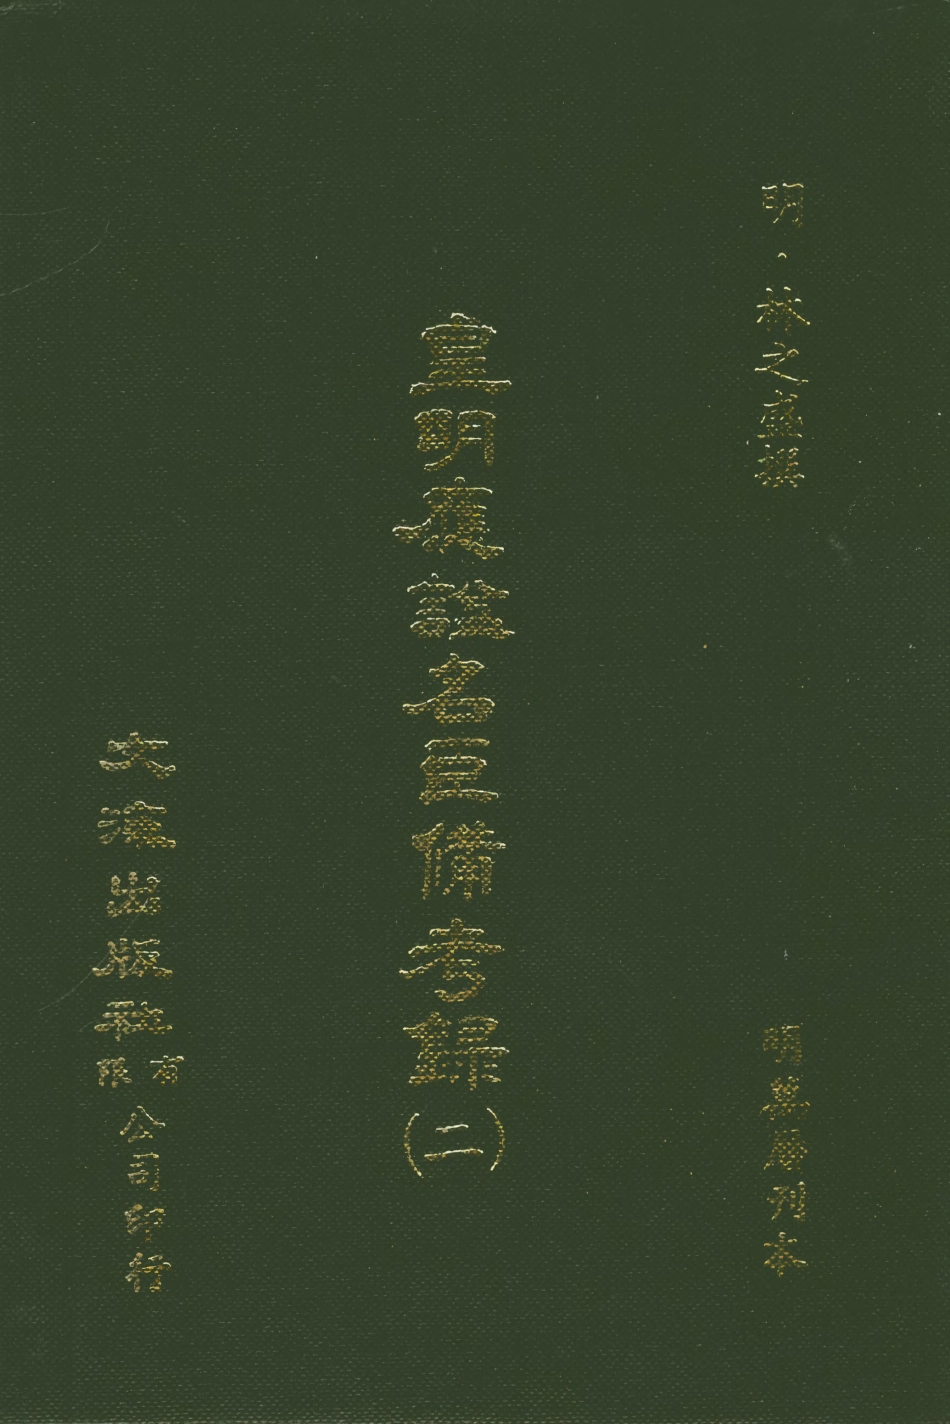 明·林之盛撰
明萬曆刊本
皇明應諡名臣備考錄(二)
文海出版社有限公司印行